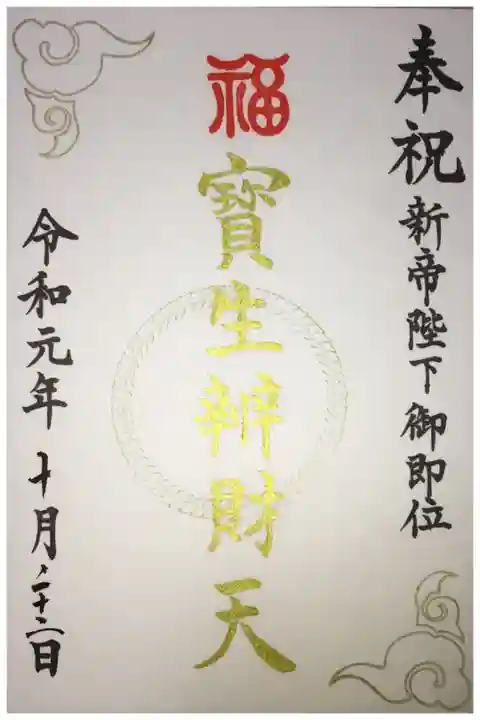 奉祝 新帝陛下御即位
福
寶生辨財天
令和元年 十月二十二日